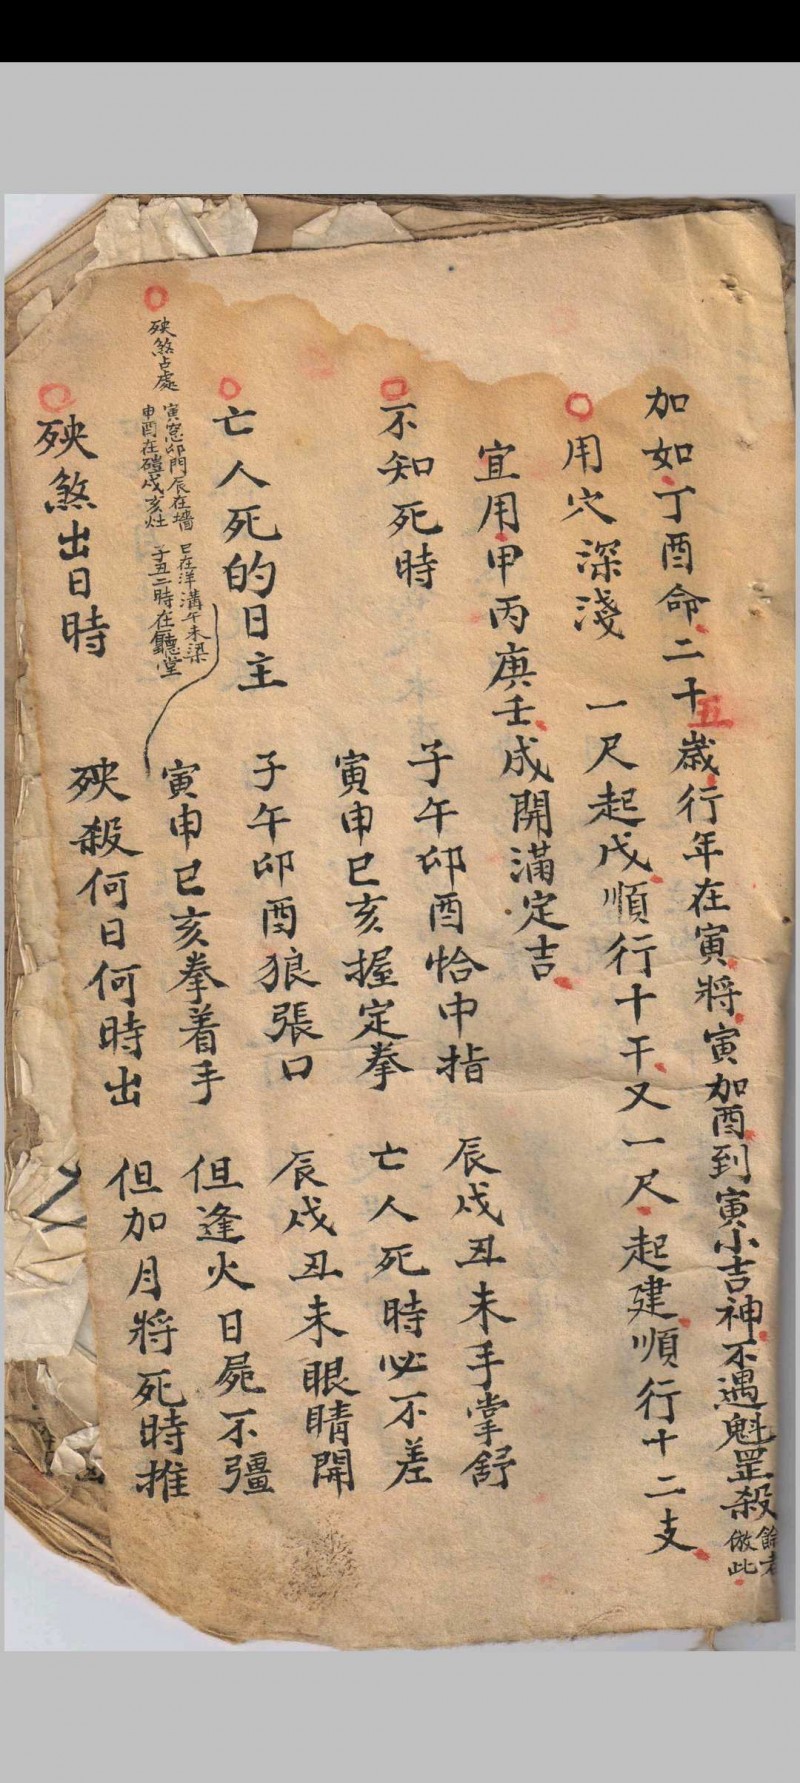 加如丁酉命二十五歲行年在寅將寅加酉到寅小吉神不遇魁罡殺餘者倣此
用穴深淺 一尺起戊順行十干又一尺起建順行十二支
宜用甲丙庚壬成開滿定吉
不知死時 子午卯酉恰中指 辰戌丑未手掌舒
寅申巳亥握定拳 亡人死時必不差
亡人死的日主 子午卯酉狼張口 辰戌丑未眼睛開
寅申巳亥拳着手 但逢火日屍不彊
殃煞占處 寅窓卯門辰在墻 巳在洋溝午未梁
申酉在磑戌亥灶 子丑二時在廳堂
殃煞出日時 殃殺何日何時出 但加月將死時推